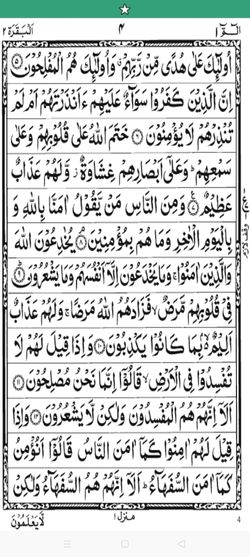 الٓمّٓ ١ ٤ اَلْبَقَرَة ٢
اُولٰٓئِكَ عَلٰى هُدًى مِّنْ رَّبِّهِمْ ۗ وَاُولٰٓئِكَ هُمُ الْمُفْلِحُوْنَ ۝٥
اِنَّ الَّذِيْنَ كَفَرُوْا سَوَآءٌ عَلَيْهِمْ ءَاَنْذَرْتَهُمْ اَمْ لَمْ
تُنْذِرْهُمْ لَا يُؤْمِنُوْنَ ۝٦ خَتَمَ اللّٰهُ عَلٰى قُلُوْبِهِمْ وَعَلٰى
سَمْعِهِمْ ؕ وَعَلٰٓى اَبْصَارِهِمْ غِشَاوَةٌ ز وَّلَهُمْ عَذَابٌ
عَظِيْمٌ ۝٧ وَمِنَ النَّاسِ مَنْ يَّقُوْلُ اٰمَنَّا بِاللّٰهِ وَ
بِالْيَوْمِ الْاٰخِرِ وَمَا هُمْ بِمُؤْمِنِيْنَ ۝٨ يُخٰدِعُوْنَ اللّٰهَ
وَالَّذِيْنَ اٰمَنُوْا ۚ وَمَا يَخْدَعُوْنَ اِلَّآ اَنْفُسَهُمْ وَمَا يَشْعُرُوْنَ ۝٩
فِيْ قُلُوْبِهِمْ مَّرَضٌ ۙ فَزَادَهُمُ اللّٰهُ مَرَضًا ۚ وَلَهُمْ عَذَابٌ
اَلِيْمٌ ۙ بِمَا كَانُوْا يَكْذِبُوْنَ ۝١٠ وَاِذَا قِيْلَ لَهُمْ لَا
تُفْسِدُوْا فِي الْاَرْضِ ۙ قَالُوْٓا اِنَّمَا نَحْنُ مُصْلِحُوْنَ ۝١١
اَلَآ اِنَّهُمْ هُمُ الْمُفْسِدُوْنَ وَلٰكِنْ لَّا يَشْعُرُوْنَ ۝١٢ وَاِذَا
قِيْلَ لَهُمْ اٰمِنُوْا كَمَآ اٰمَنَ النَّاسُ قَالُوْٓا اَنُؤْمِنُ
كَمَآ اٰمَنَ السُّفَهَآءُ ؕ اَلَآ اِنَّهُمْ هُمُ السُّفَهَآءُ وَلٰكِنْ
لَّا يَعْلَمُوْنَ منزل ١ 4